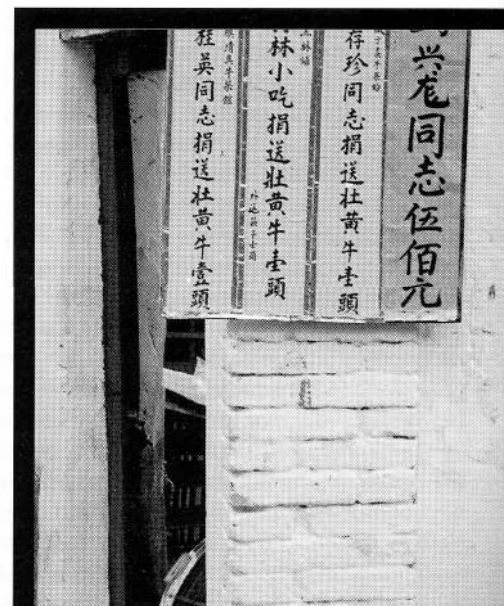 兴龙同志伍佰元
存珍同志捐送壮黄牛壹頭
林小吃捐送壮黄牛壹頭
清真牛菜館
桂英同志捐送壮黄牛壹頭